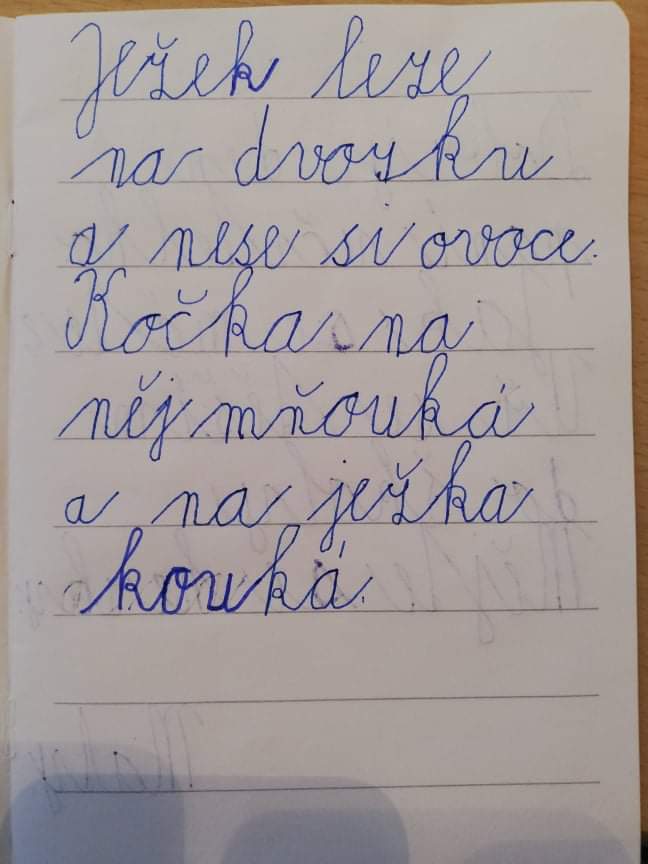 Ježek leze
na dvorku
a nese si ovoce.
Kočka na
něj mňouká
a na ježka
kouká.